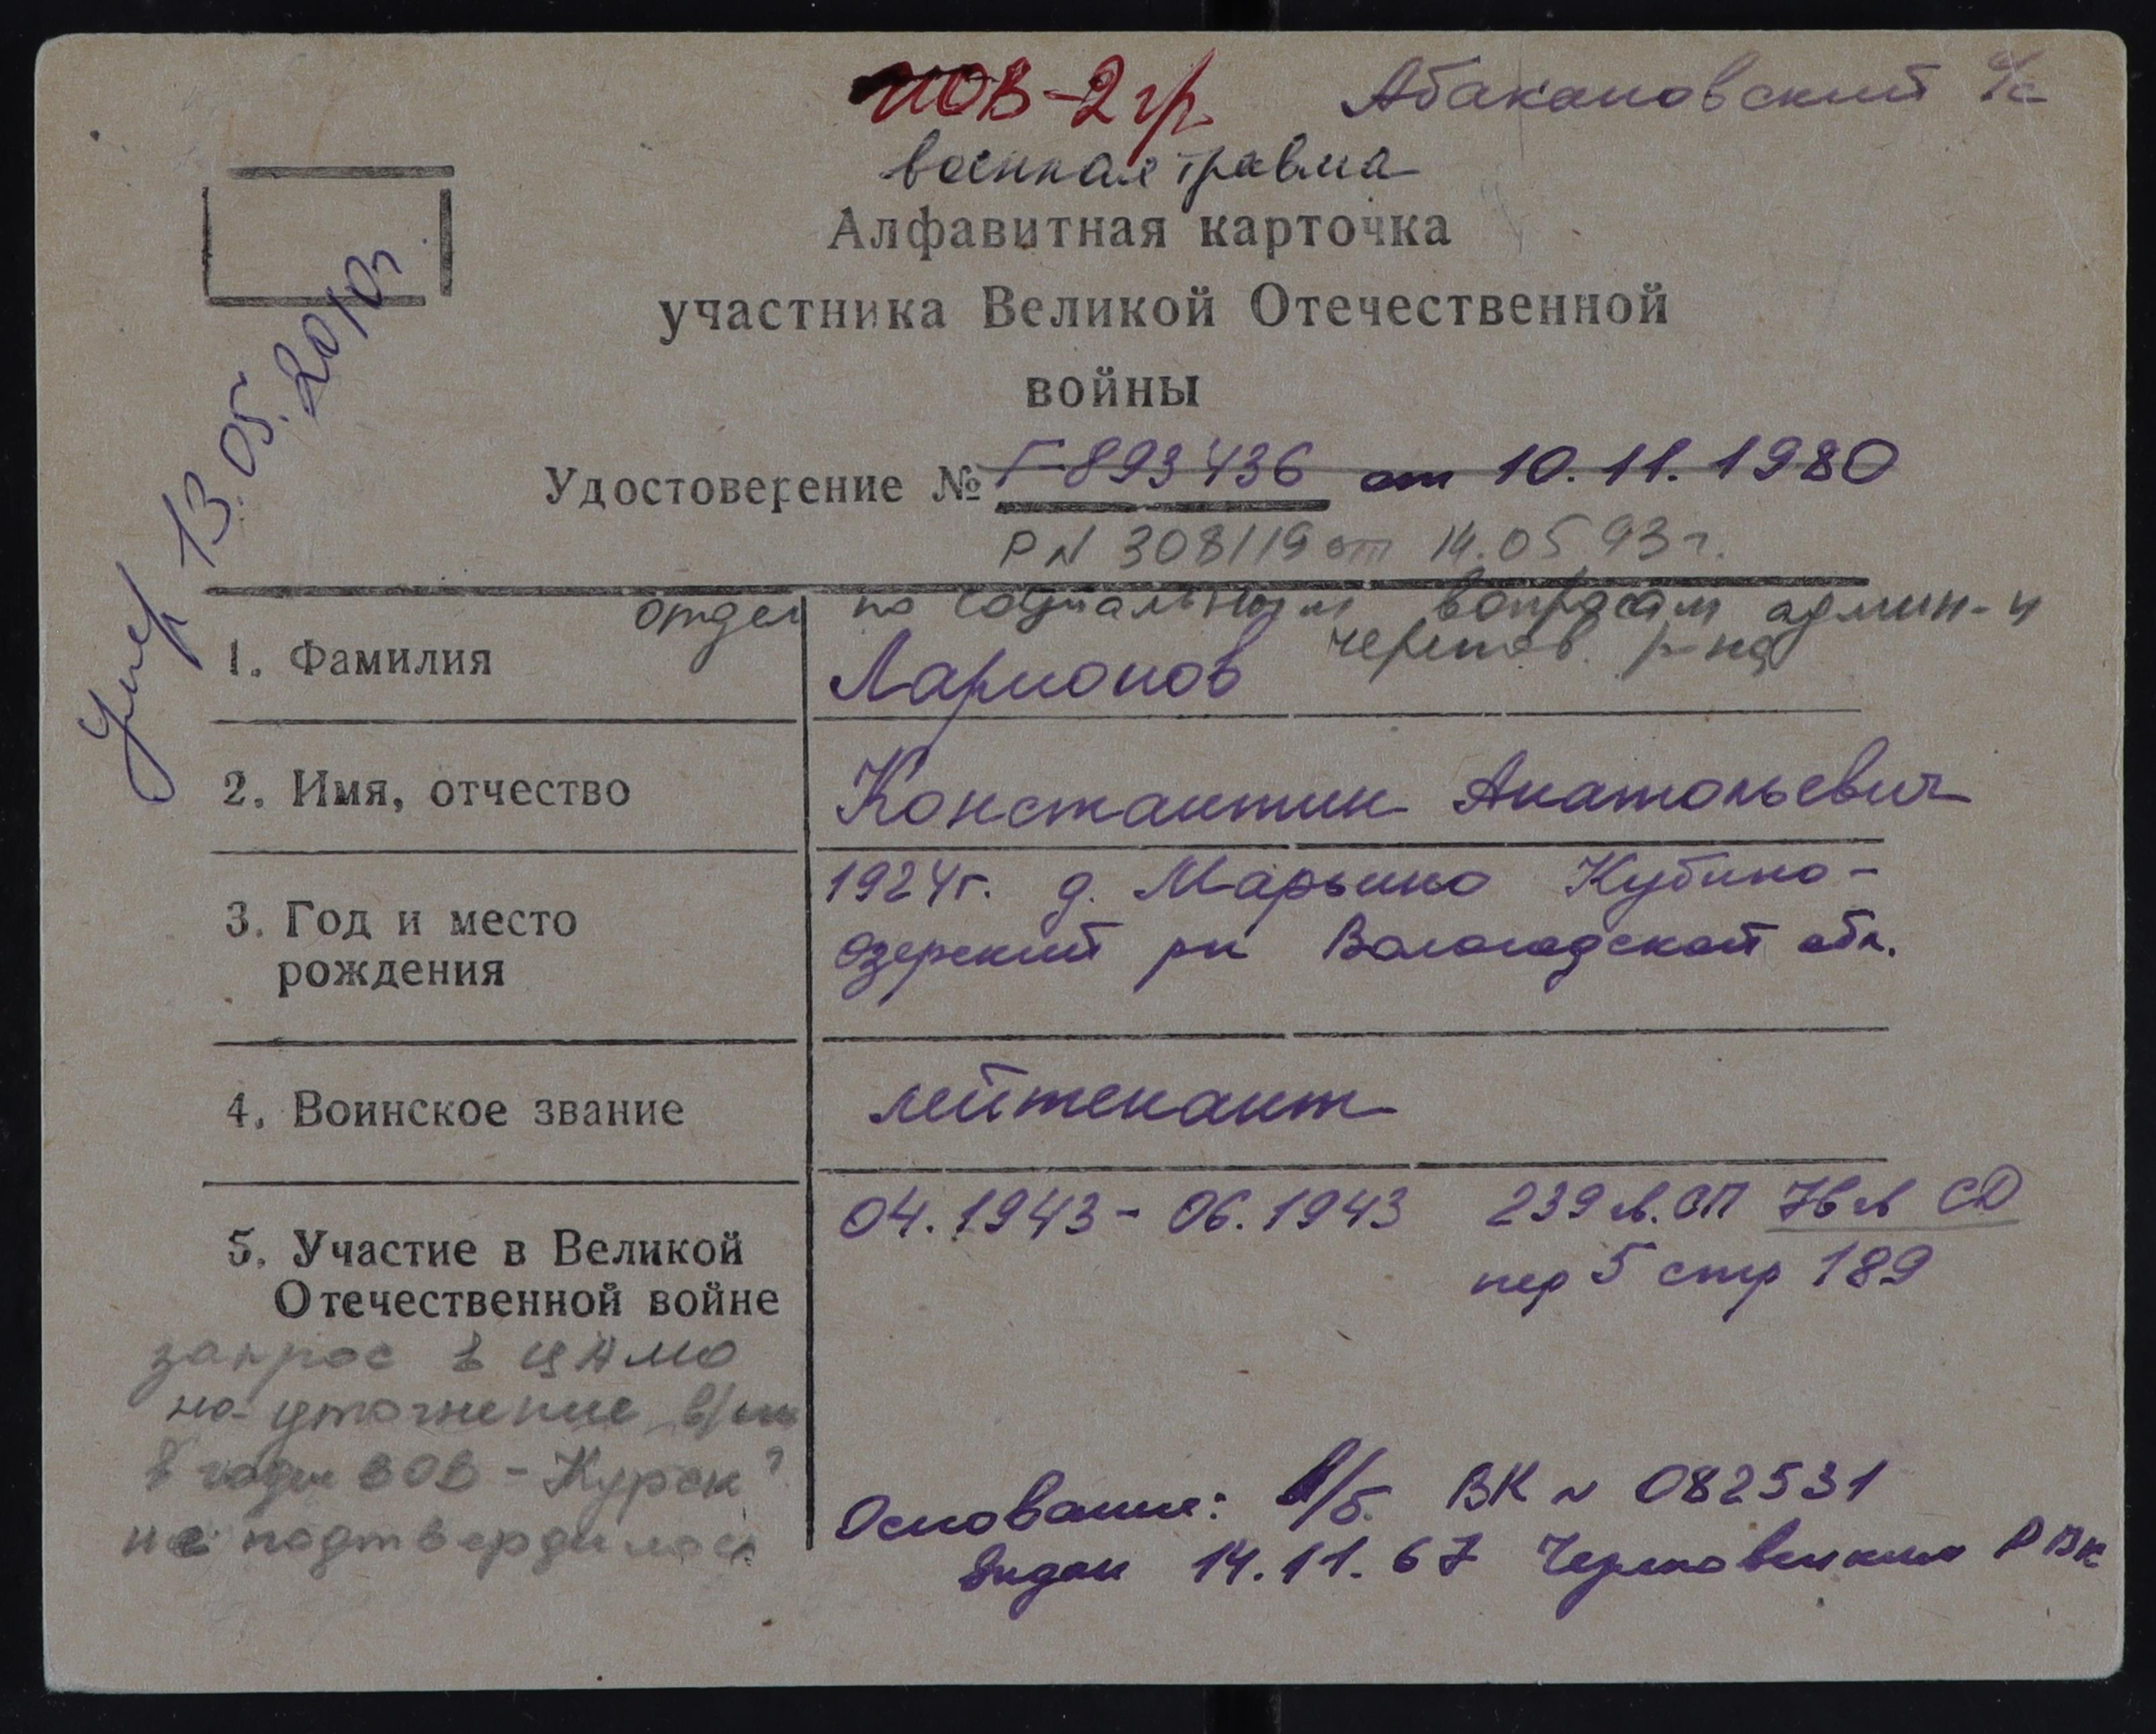 ИОВ-2гр Абакановский с/с
военная травма
Алфавитная карточка
участника Великой Отечественной
войны
Удостоверение № Г-893436 от 10.11.1980
Р N 308119 от 14.05.93г.
отдел по социальным вопросам админ-и
черепов. р-на
Умер 13.05.2010г.
1. Фамилия Ларионов
2. Имя, отчество Константин Анатольевич
3. Год и место 1924г. д. Марьино Кубино-
рождения озерский рн Вологодской обл.
4. Воинское звание лейтенант
5. Участие в Великой 04.1943 - 06.1943 239 гв. СП 76 гв СД
Отечественной войне пер 5 стр 189
запрос в ЦАМО
на уточнение
в годы ВОВ - Курск?
не подтвердилось
Основание: в/б. ВК N 082531
выдан 14.11.67 Череповецким РВК